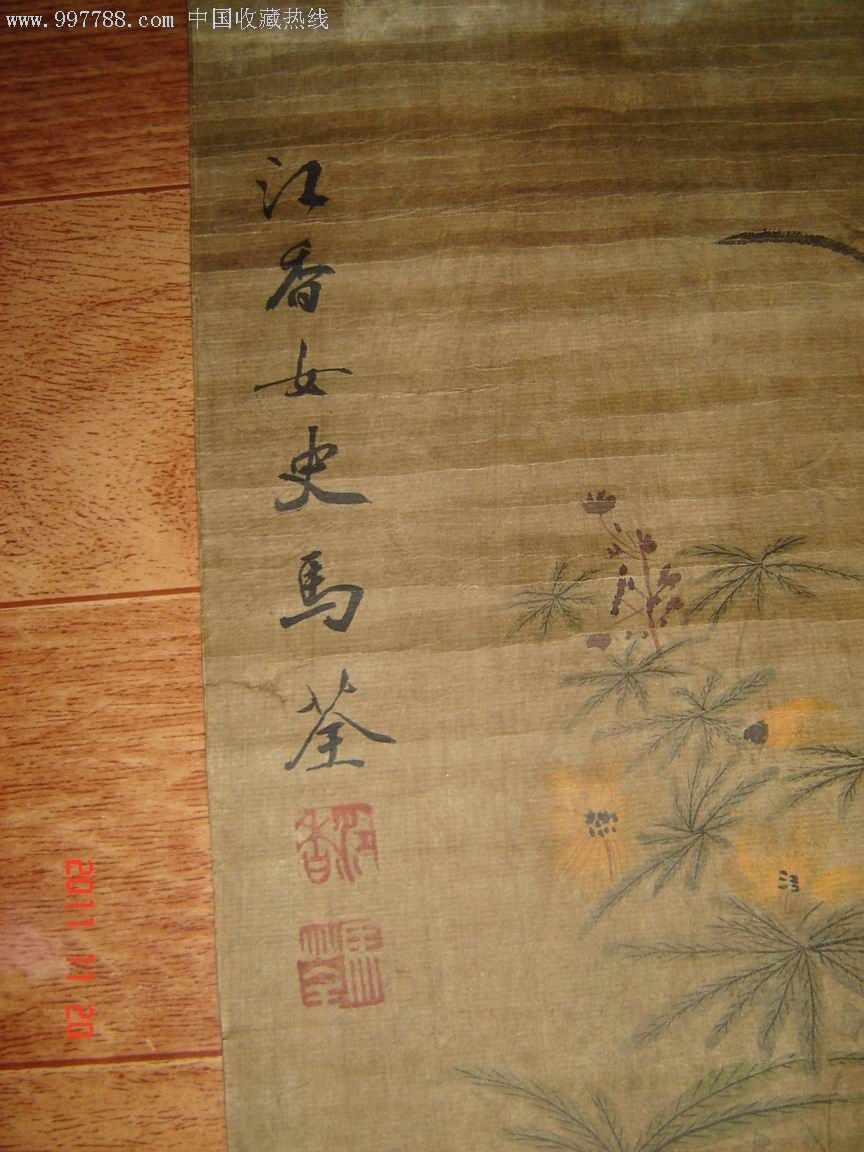 www.997788.com 中国收藏热线
江香女史馬荃
江香
2011 11 20